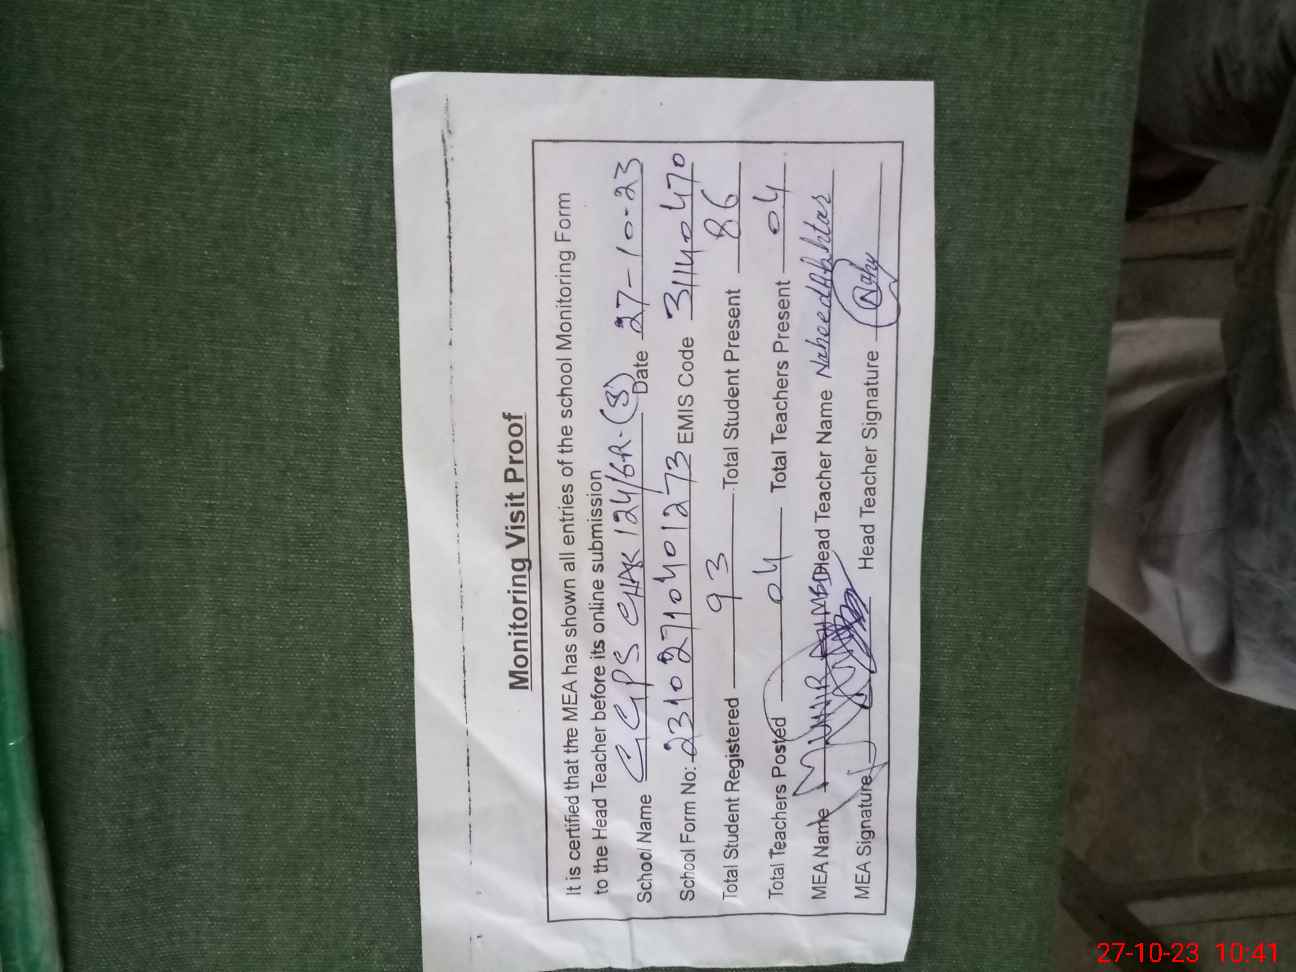 Monitoring Visit Proof
It is certified that the MEA has shown all entries of the school Monitoring Form
to the Head Teacher before its online submission
School Name GGPS CHAK 124/6R-(S) Date 27-10-23
School Form No: 23102710401273 EMIS Code 31140470
Total Student Registered 93 Total Student Present 86
Total Teachers Posted 04 Total Teachers Present 04
MEA Name MUNIR Head Teacher Name Naheed Akhtar
MEA Signature Head Teacher Signature
27-10-23 10:41